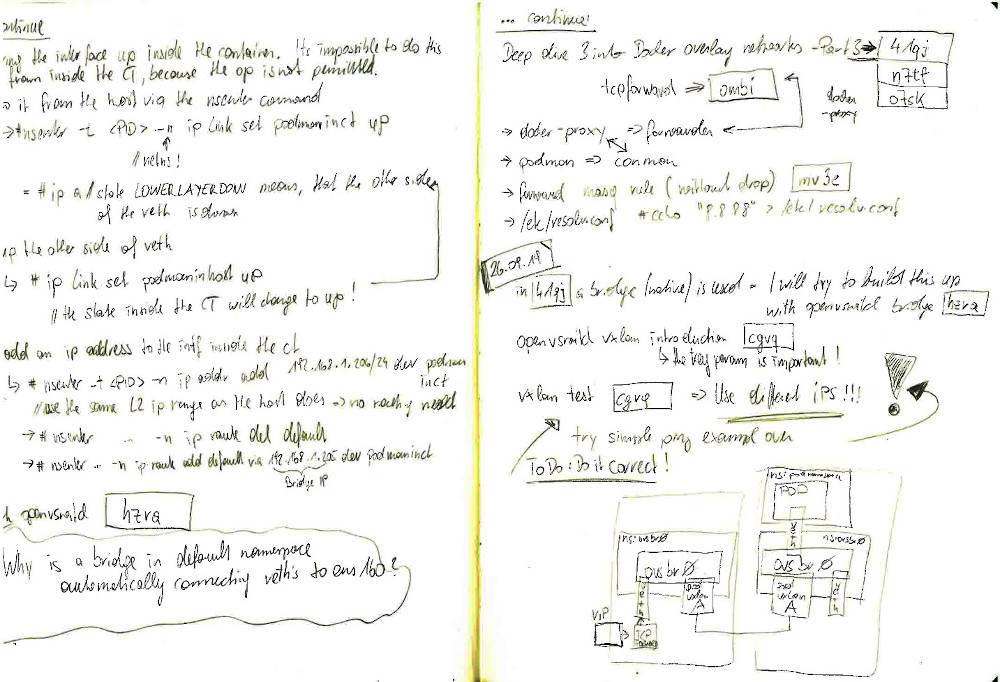 ontinue
ing the interface up inside the container. Its impossible to do this
from inside the CT, because the op is not permitted.
it from the host via the nsenter command
→ # nsenter -t <PID> -n ip link set podmaninct up
// netns!
= # ip a // state LOWERLAYERDOWN means, that the other side
of the veth is down
up the other side of veth
↳ # ip link set podmaninhost up
// the state inside the CT will change to up!
add an ip address to the intf inside the ct
↳ # nsenter -t <PID> -n ip addr add 192.168.1.206/24 dev podman
inct
// use the same L2 ip range as the host does => no routing need
→ # nsenter .. -n ip route del default
→ # nsenter .. -n ip route add default via 192.168.1.205 dev podmaninct
Bridge IP
h openvswitch hzra
Why is a bridge in default namespace
automatically connecting veth's to ens160?
... continue:
Deep dive 3 into Docker overlay networks - Part 3 → 41qj
n7tf
o7sk
docker
-proxy
tcpforward => ombi
→ docker-proxy => forwarder
→ podman => conmon
→ forward masq rule (without drop) mv3e
→ /etc/resolv.conf # echo "8.8.8.8" > /etc/resolv.conf
26.09.19
in 41qj a bridge (native) is used - I will try to build this up
with openvswitch bridge hzra
openvswitch vxlan introduction cgvq
↳ the key param is important!
vxlan test cgvq => Use different IPS!!!
try simple ping example over
ToDo: Do it correct!
ns: podnamespace
POD
veth
ns: ovsbr0
ovsbr0
veth
vxlan
A
VIP
TCP
ns: ovsbr0
ovsbr0
vxlan
A
veth